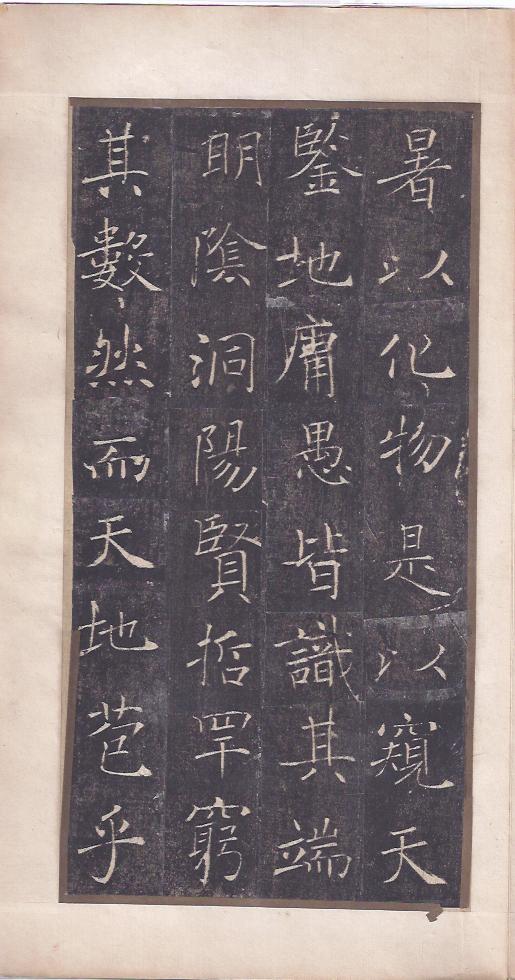 暑以化物是以窺天
鑒地庸愚皆識其端
明陰洞陽賢哲罕窮
其數然而天地苞乎